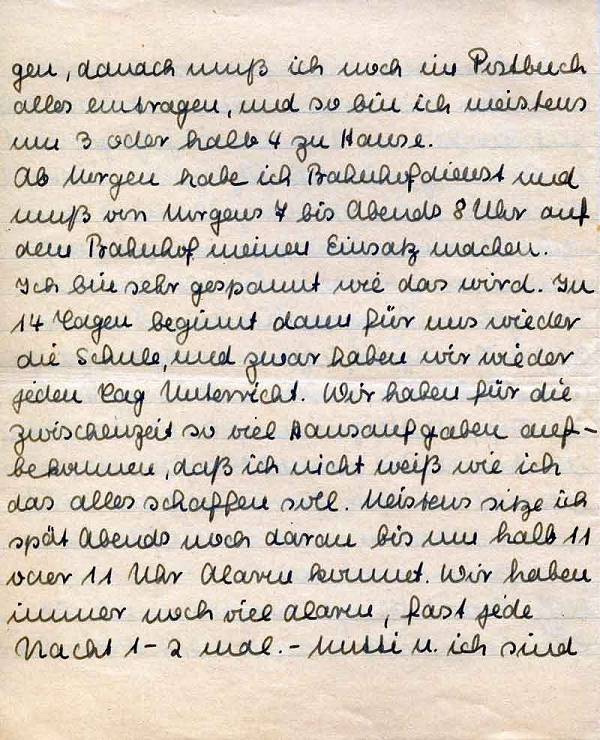 gen, danach muß ich noch im Postbuch
alles eintragen, und so bin ich meistens
um 3 oder halb 4 zu Hause.
Ab Morgen habe ich Bahnhofdienst und
muß von Morgens 7 bis Abends 8 Uhr auf
dem Bahnhof meinen Einsatz machen.
Ich bin sehr gespannt wie das wird. In
14 Tagen beginnt dann für uns wieder
die Schule, und zwar haben wir wieder
jeden Tag Unterricht. Wir haben für die
zwischenzeit so viel Hausaufgaben auf-
bekommen, daß ich nicht weiß wie ich
das alles schaffen soll. Meistens sitze ich
spät Abends noch daran bis um halb 11
oder 11 Uhr Alarm kommt. Wir haben
immer noch viel alarm, fast jede
Nacht 1-2 mal. - Mutti u. ich sind